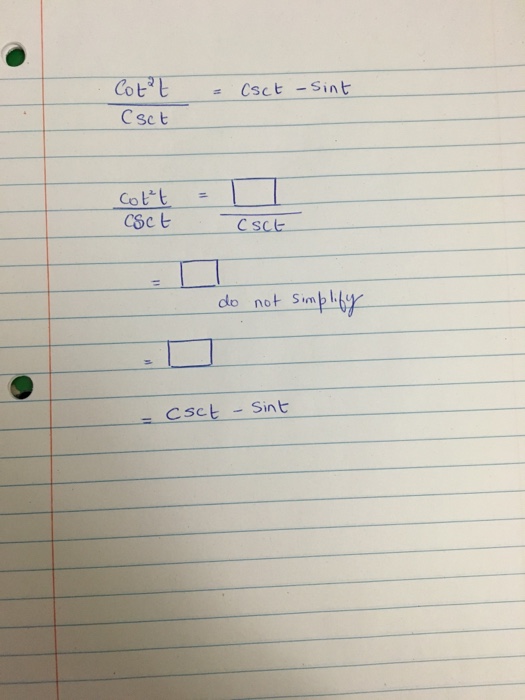 Cot²t = Csct - Sint
Csct
Cot²t =
CSCt Csct
=
do not simplify
=
= Csct - Sint